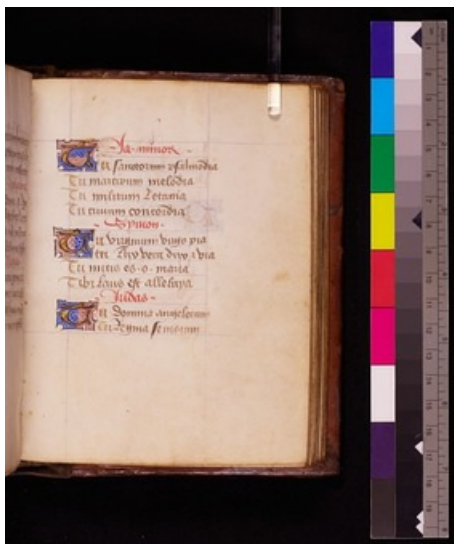 Ja. minor
Tu sanctorum psalmodia
Tu martirum melodia
Tu militum letania
Tu civium concordia
Symon
Tu virginum virgo pia
Tu mitis es o maria
Tibi laus est alleluya
Judas
Tu domina angelorum
Tu regina